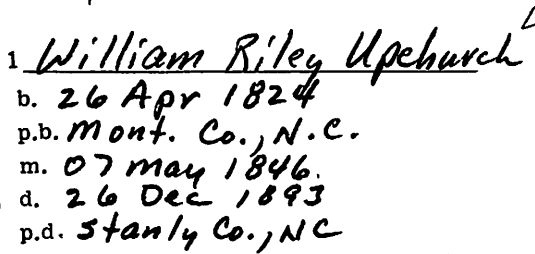 1 William Riley Upchurch
b. 26 Apr 1824
p.b. Mont. Co., N.C.
m. 07 May 1846.
d. 26 Dec 1893
p.d. Stanly Co., NC